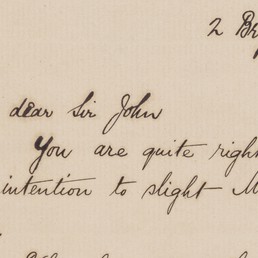 2 Br
dear Sir John
You are quite righ
intention to slight M